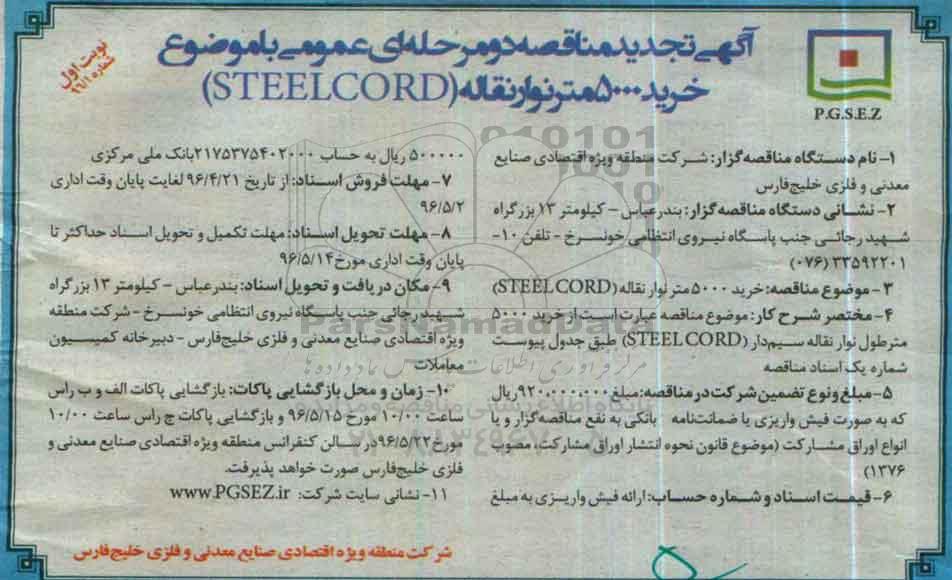 آگهی تجدید مناقصه دو مرحله‌ای عمومی با موضوع
خرید ۵۰۰۰ متر نوار نقاله (STEELCORD)
نوبت اول
شماره ۹۶/۱
P.G.S.E.Z
۱- نام دستگاه مناقصه‌گزار: شرکت منطقه ویژه اقتصادی صنایع
معدنی و فلزی خلیج‌فارس
۲- نشانی دستگاه مناقصه‌گزار: بندرعباس - کیلومتر ۱۳ بزرگراه
شهید رجائی جنب پاسگاه نیروی انتظامی خونسرخ - تلفن ۱۰-
۳۳۵۹۲۲۰۱ (۰۷۶)
۳- موضوع مناقصه: خرید ۵۰۰۰ متر نوار نقاله (STEELCORD)
۴- مختصر شرح کار: موضوع مناقصه عبارت است از خرید ۵۰۰۰
متر طول نوار نقاله سیم‌دار (STEELCORD) طبق جدول پیوست
شماره یک اسناد مناقصه
۵- مبلغ و نوع تضمین شرکت در مناقصه: مبلغ ۹۲۰٫۰۰۰٫۰۰۰ ریال
که به صورت فیش واریزی یا ضمانت‌نامه بانکی به نفع مناقصه‌گزار و یا
انواع اوراق مشارکت (موضوع قانون نحوه انتشار اوراق مشارکت، مصوب
۱۳۷۶)
۶- قیمت اسناد و شماره حساب: ارائه فیش واریزی به مبلغ
۵۰۰۰۰۰ ریال به حساب ۲۱۷۵۳۷۵۴۰۲۰۰۰ بانک ملی مرکزی
۷- مهلت فروش اسناد: از تاریخ ۹۶/۴/۲۱ لغایت پایان وقت اداری
۹۶/۵/۲
۸- مهلت تحویل اسناد: مهلت تکمیل و تحویل اسناد حداکثر تا
پایان وقت اداری مورخ ۹۶/۵/۱۴
۹- مکان دریافت و تحویل اسناد: بندرعباس - کیلومتر ۱۳ بزرگراه
شهید رجائی جنب پاسگاه نیروی انتظامی خونسرخ - شرکت منطقه
ویژه اقتصادی صنایع معدنی و فلزی خلیج‌فارس - دبیرخانه کمیسیون
معاملات
۱۰- زمان و محل بازگشایی پاکات: بازگشایی پاکات الف و ب راس
ساعت ۱۰/۰۰ مورخ ۹۶/۵/۱۵ و بازگشایی پاکات ج راس ساعت ۱۰/۰۰
مورخ ۹۶/۵/۲۲ در سالن کنفرانس منطقه ویژه اقتصادی صنایع معدنی و
فلزی خلیج‌فارس صورت خواهد پذیرفت.
۱۱- نشانی سایت شرکت: www.PGSEZ.ir
شرکت منطقه ویژه اقتصادی صنایع معدنی و فلزی خلیج‌فارس
ParsNamadData